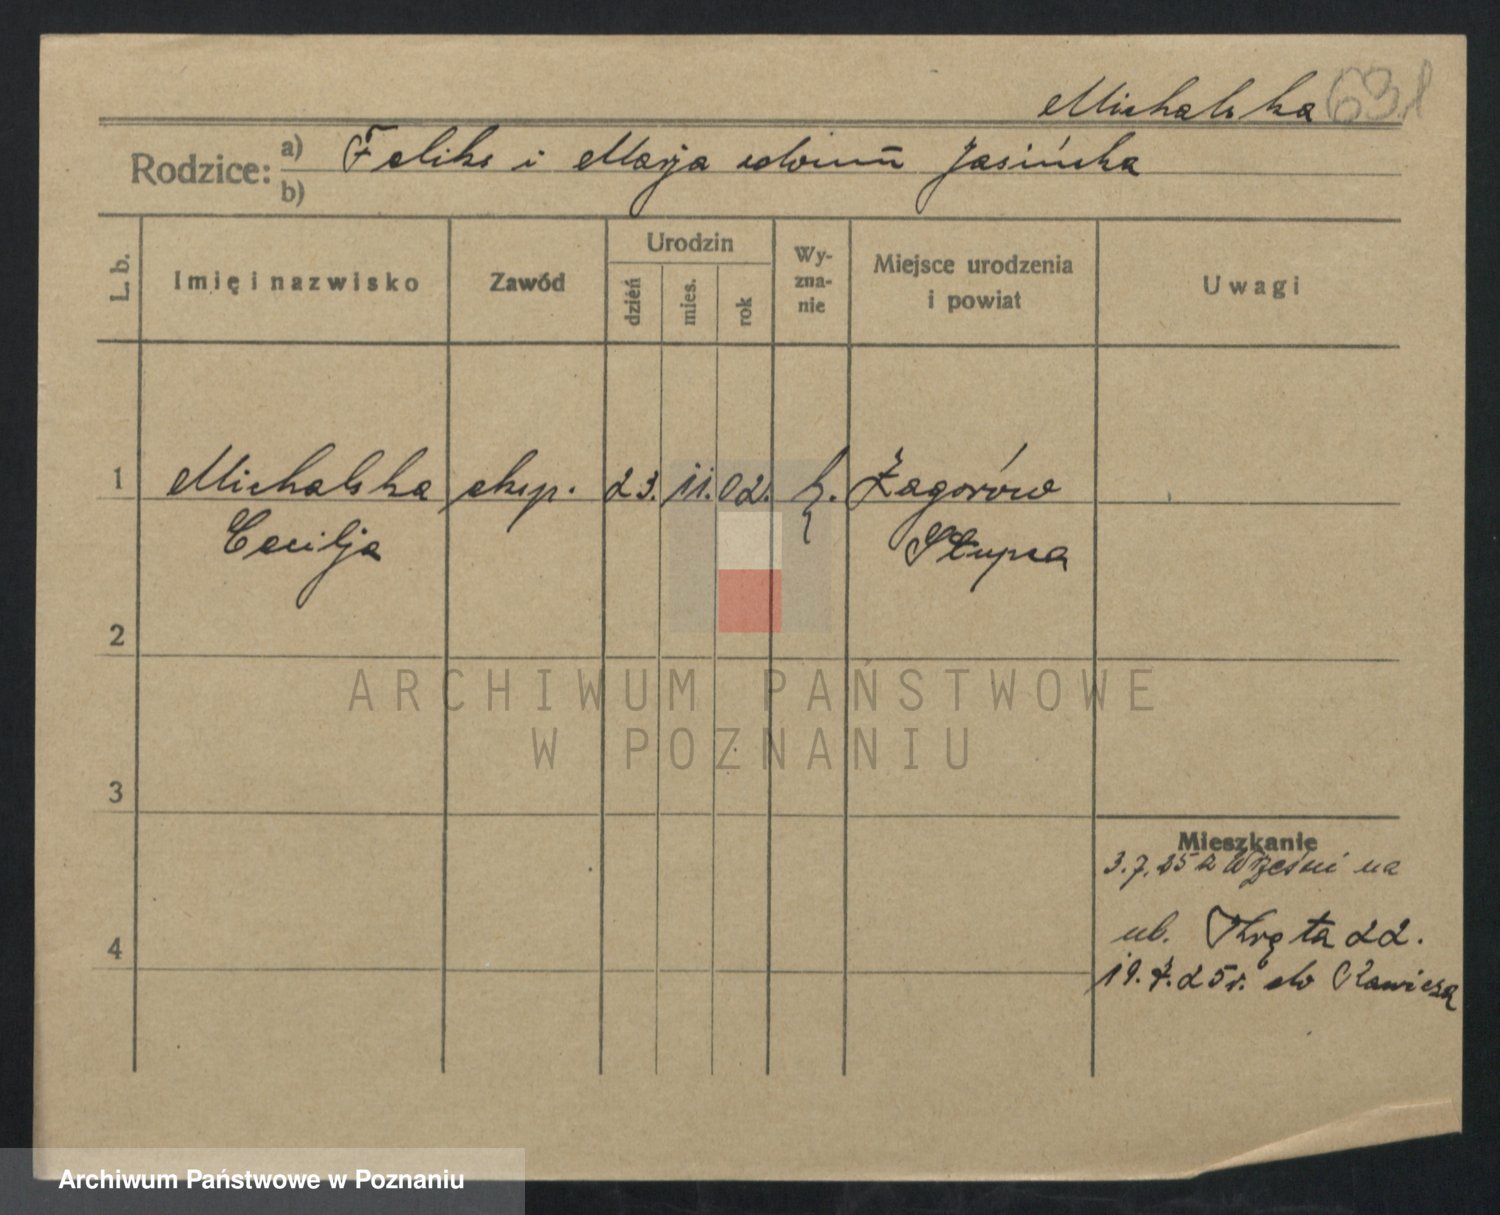 Michalska 631
Rodzice: a) Feliks i Marja z domu Jasińska
b)
L. b.
Imię i nazwisko
Zawód
Urodzin
dzień
mies.
rok
Wy-
zna-
nie
Miejsce urodzenia
i powiat
Uwagi
1 Michalska eksp. 23. 11. 02. k. Zagorów
Cecilja Słupca
2
ARCHIWUM PAŃSTWOWE
W POZNANIU
3
Mieszkanie
3.7.25 z Wrześni na
ul. Kręta 22.
4
19.7.25 r. do Rawicza
Archiwum Państwowe w Poznaniu